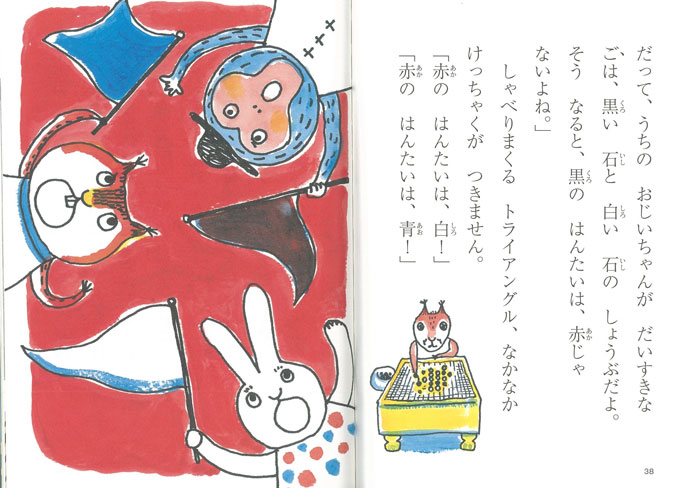 だって、うちの おじいちゃんが だいすきな
ごは、黒い 石と 白い 石の しょうぶだよ。
そう なると、黒の はんたいは、赤じゃ
ないよね。」
しゃべりまくる トライアングル、なかなか
けっちゃくが つきません。
「赤の はんたいは、白！」
「赤の はんたいは、青！」
38